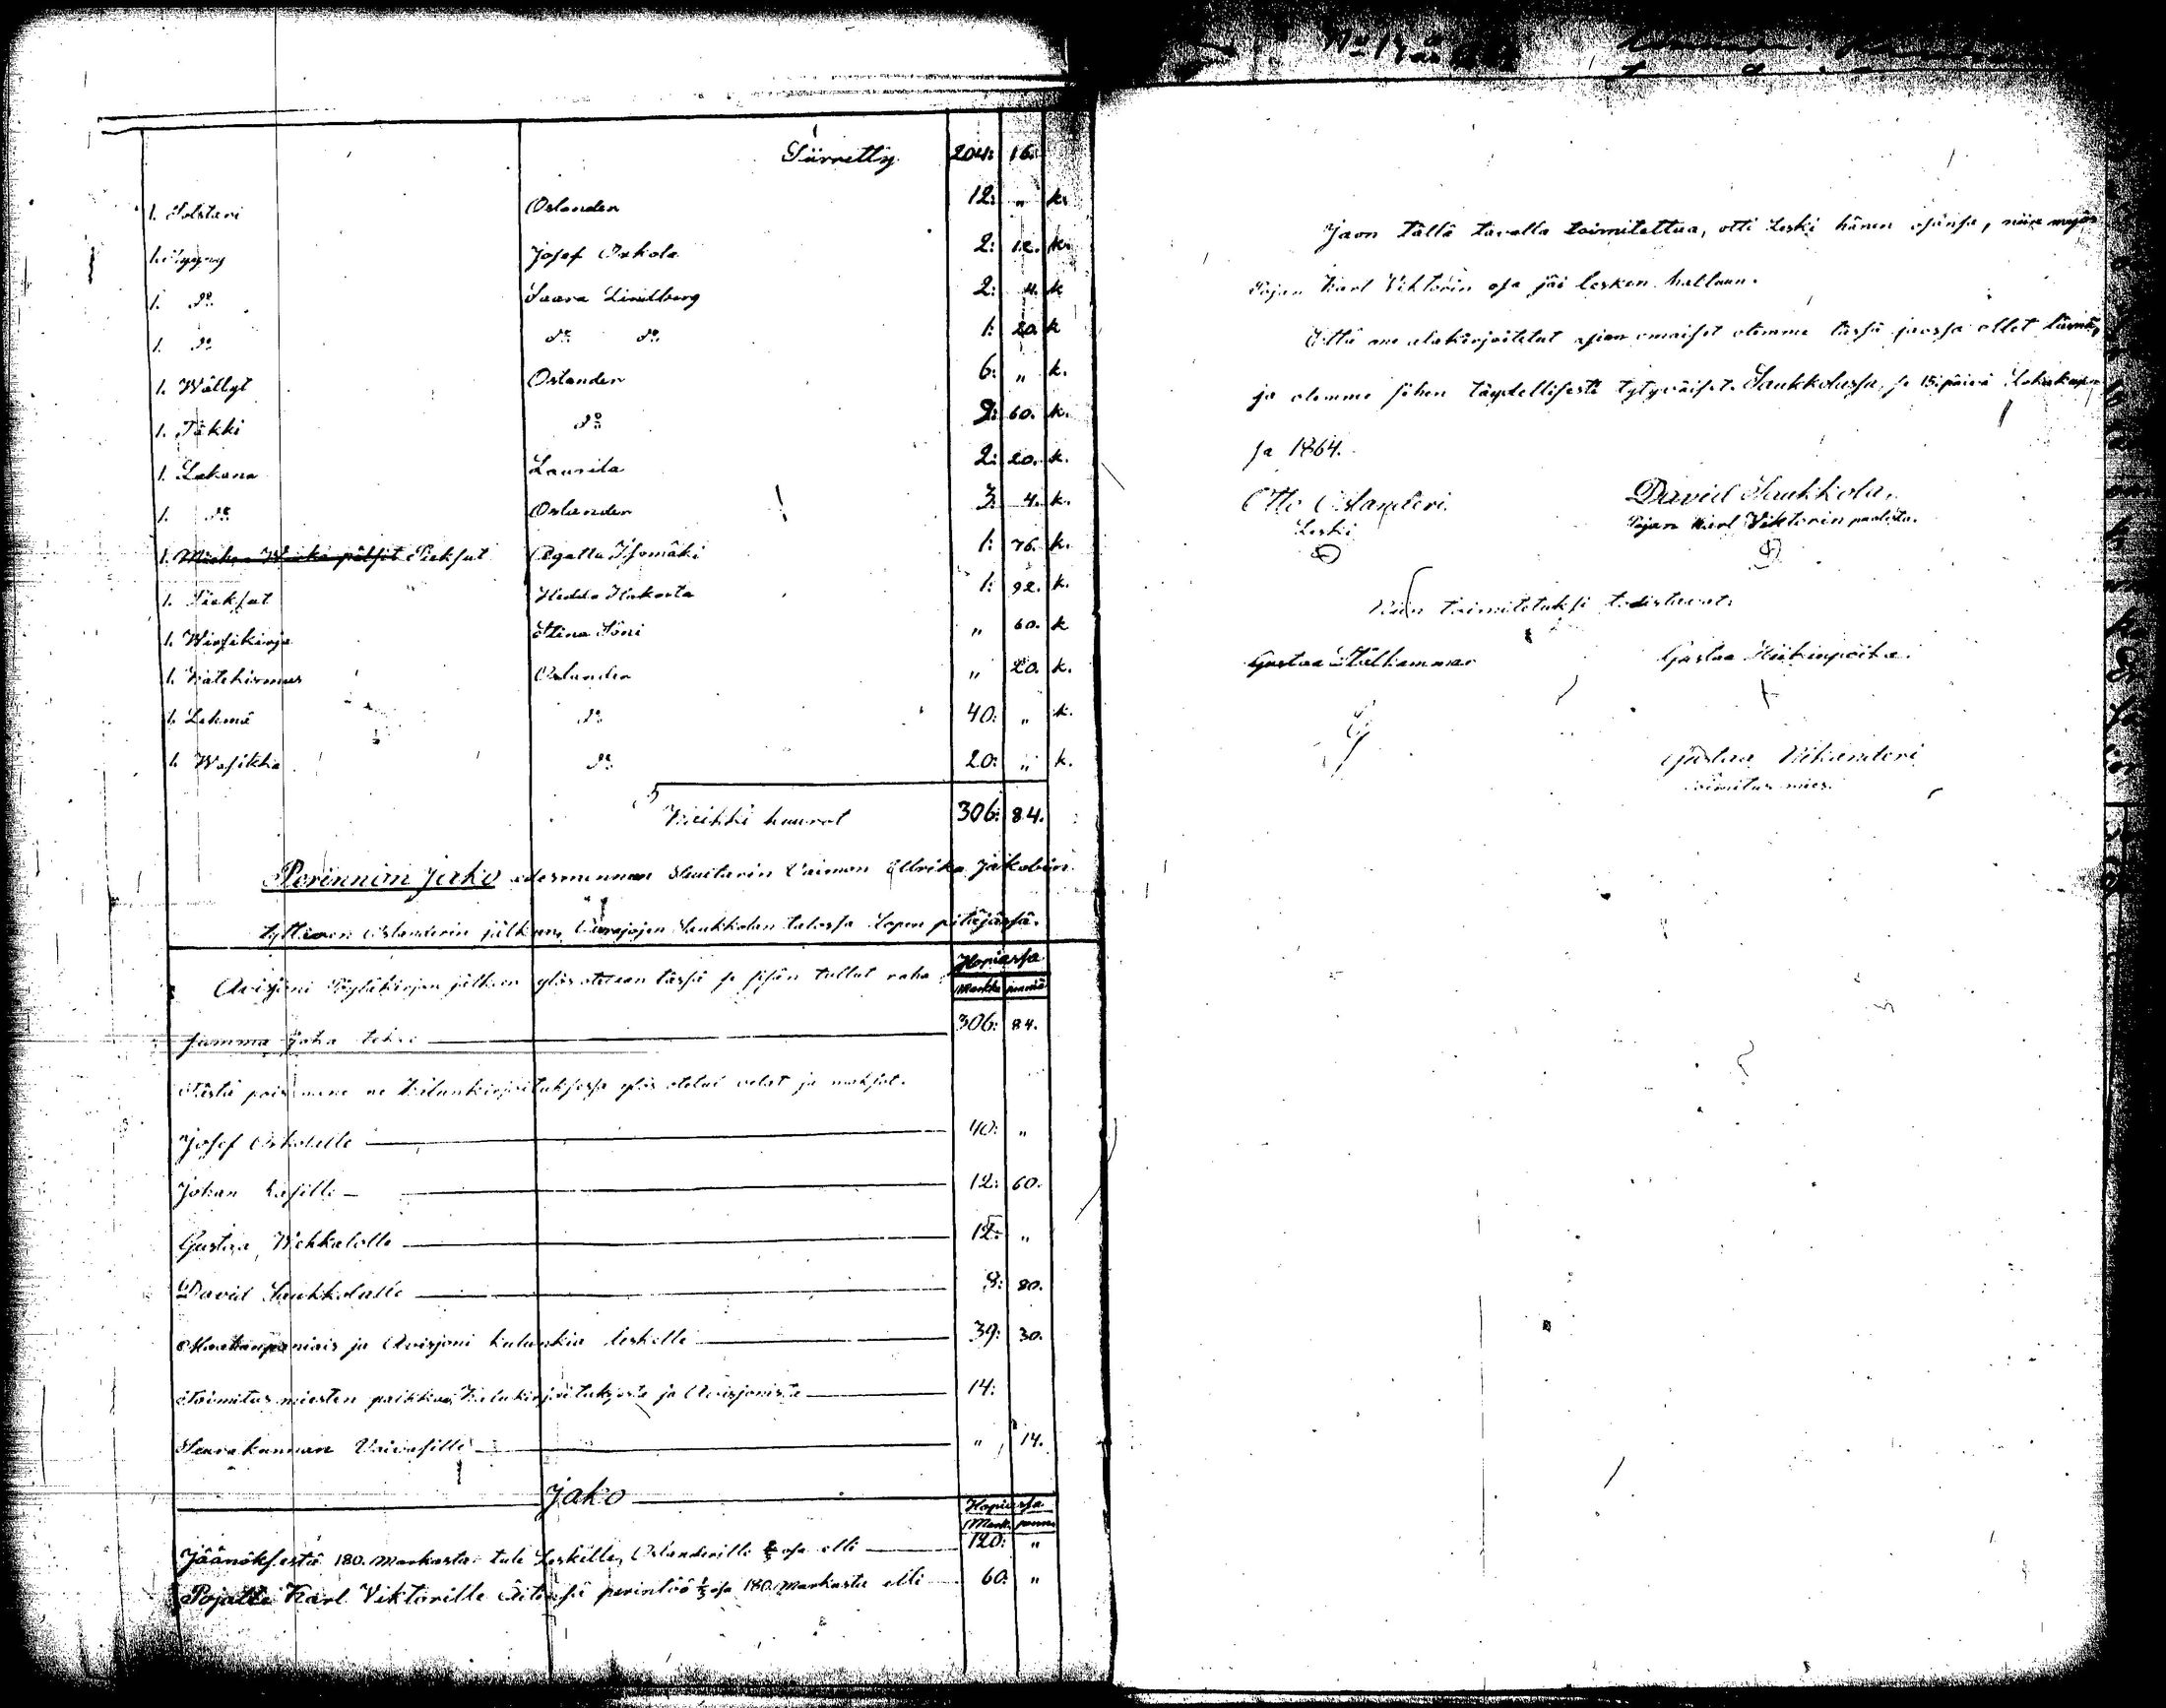 Siirretty 204: 16.
1. Östanderi 12: „ k.
1. Josef Orkola 2: 12. k.
1. Do Saara Lindberg 2: 4. k
1. Do Do Do 1: 20. k
1. Wällyt Oslander 6: „ k.
1. Täkki Do 9: 60. k.
1. Lakana Laurila 2: 20. k.
1. Do Oslander 3. 4. k.
1. Piekfut Agatta Isomäki 1: 76. k.
1. Piekfut Hedda Hakosta 1: 92. k.
1. Wirsikirja Stina Söni „ 60. k
1. Katekismus Oslander „ 20. k.
1. Lehmä Do 40: „ k.
1. Wasikka Do 20: „ k.
Kaikki kuurot 306: 84.
Perinnön jako edesmennen Vaimon Ulrika Jakobin
tyttären Oslanderin jälkeen, Saukkolan talossa Lopen pitäjäsfä.
Avisjoni Pöytäkirjan jälkeen ylös otetaan täsfä se sisän tullut raha Hopiassa
Markka penniä
summa joka tekee 306: 84.
Tästä pois menee ne Kalunkirjoituksessa ylös otetut velat ja maksot.
Josef Orkolalle 40: „
Johan Kasille 12: 60.
Gustaa Wehkalalle 12: „
David Saukkolalle 8: 80.
Maahanpaniais ja Avisjoni kulunkia leskelle 39: 30.
Toimitus miesten palkkaa, Kalukirjoituksesta ja Avisjonista 14:
Seurakunnan Vaivasille „ 14.
Jako
Hopiassa
Mark. penni
Jäänöksestä 180. Markasta tule Leskelle, Oslanderille ⅔ osa elli 120: „
Pojalle Karl Viktorille Äitinsä perintöö ⅓ osa 180. Markasta elli 60: „
Jaon tällä tavalla toimitettua, otti Leski hänen osansa, niin myös
Pojan Karl Viktorin osa jäi lesken haltuun.
Että me alakirjoitetut asian omaiset olemme täsfä jaossa ollet läsnä,
ja olemme siihen täydellisesti tytyväiset. Saukkolassa, se 15. päivä Lokakuu
sa 1864.
Otto Oslanderi David Saukkola.
Leski Pojan Karl Viktorin puolesta.
Näin toimitetuksi todistavat:
Gustaa Stålhammar Gustaa Heikinpoika.
Gustaa Vikanderi
toimitus mies.